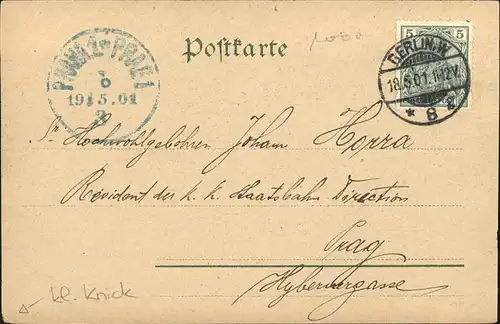 Postkarte
5 5
BERLIN.W.
18.5.01.11-12V.
* 8 g
PRAHA 1-PRAG 1
19 5.01
3
Sr Hochwohlgeboren Johann Horra
Revident der k. k. Staatsbahn Direction
Prag
Hybernergasse
kl. Knick